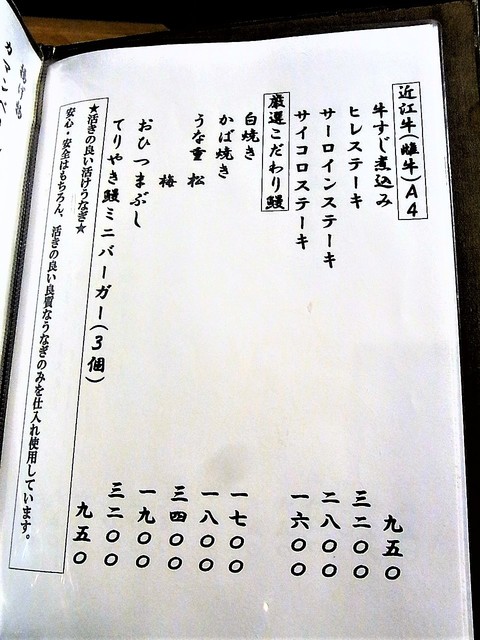 近江牛(雌牛)A4
牛すじ煮込み 九五〇
ヒレステーキ 三二〇〇
サーロインステーキ 二八〇〇
サイコロステーキ 一六〇〇
厳選こだわり鰻
白焼き 一七〇〇
かば焼き 一八〇〇
うな重 松 三四〇〇
梅 一九〇〇
おひつまぶし 三二〇〇
てりやき鰻ミニバーガー(3個) 九五〇
★活きの良い活けうなぎ★
安心・安全はもちろん、活きの良い良質なうなぎのみを仕入れ使用しています。
揚げ物